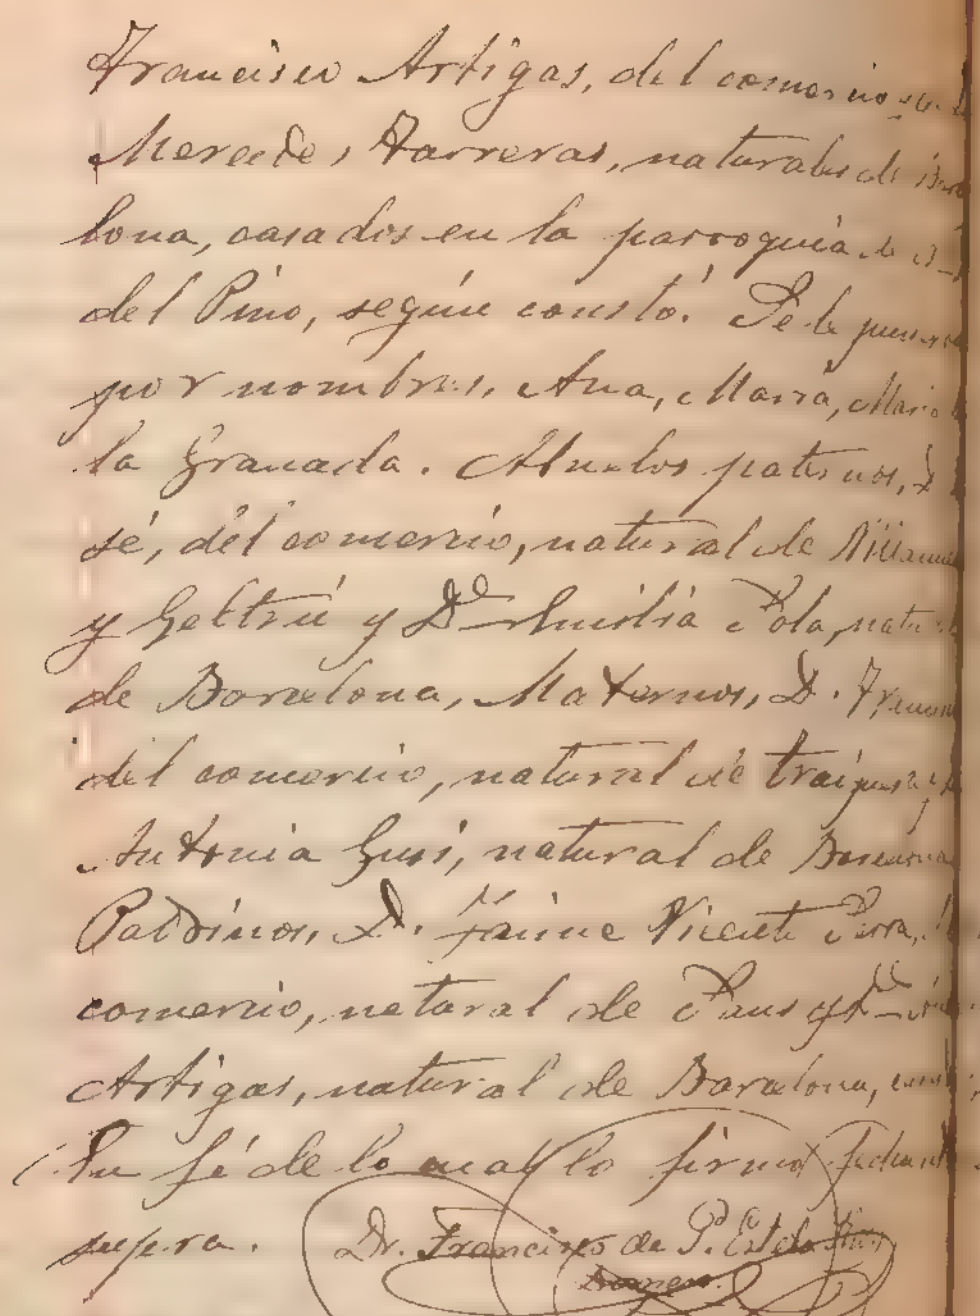 Francisco Artigas, del comercio, y de
Mercedes Farreras, naturales de Barce
lona, casados en la parroquia de
del Pino, según constó. Se le pusieron
por nombres, Ana, María, María
la Granada. Abuelos paternos, D.
sé, del comercio, natural de Villanueva
y Geltrú y Dª Emilia Pola, natural
de Barcelona, Maternos, D.
del comercio, natural de
Antonia natural de
Padrinos, D. Jaime Vicente
comercio, natural de y Dª
Artigas, natural de Barcelona,
En fé de lo cual lo firmo fecha ut
supra. Dr. Francisco de P.